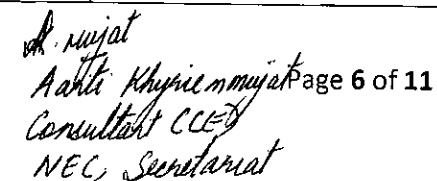 A. mujat
Aarti Khyriemmujat Page 6 of 11
Consultant (CCED)
NEC, Secretariat